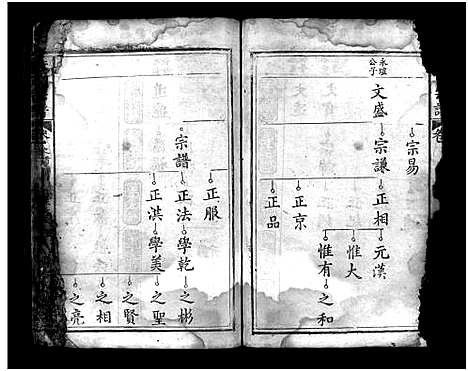 宗易
永瑄公子
文盛
宗謙
正相
元漢
惟大
惟有
之和
正京
正品
正服
宗譜
正法
學乾
之彬
正洪
學美
之聖
之賢
之相
之亮